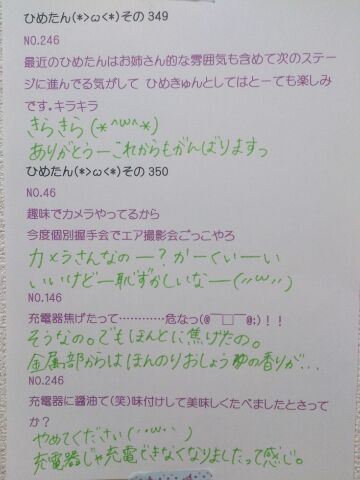 ひめたん(*>ω<*)その349
NO.246
最近のひめたんはお姉さん的な雰囲気も含めて次のステー
ジに進んでる気がして ひめきゅんとしてはとーても楽しみ
です。キラキラ
きらきら(*^ω^*)
ありがとうーこれからもがんばりますっ
ひめたん(*>ω<*)その350
NO.46
趣味でカメラやってるから
今度個別握手会でエア撮影会ごっこやろ
カメラさんなのー?かーくいーい
いいけどー恥ずかしいなー(´･ω･`)
NO.146
充電器焦げたって…………危なっ(@￣□￣@;)!!
そうなの。でもほんとに焦げたの。
金属部からはほんのりおしょうゆの香りが...
NO.246
充電器に醤油て(笑)味付けして美味しくたべましたとさって
か?
やめてください(´･ω･`)
充電器じゃ充電できなくなりましたって感じ。